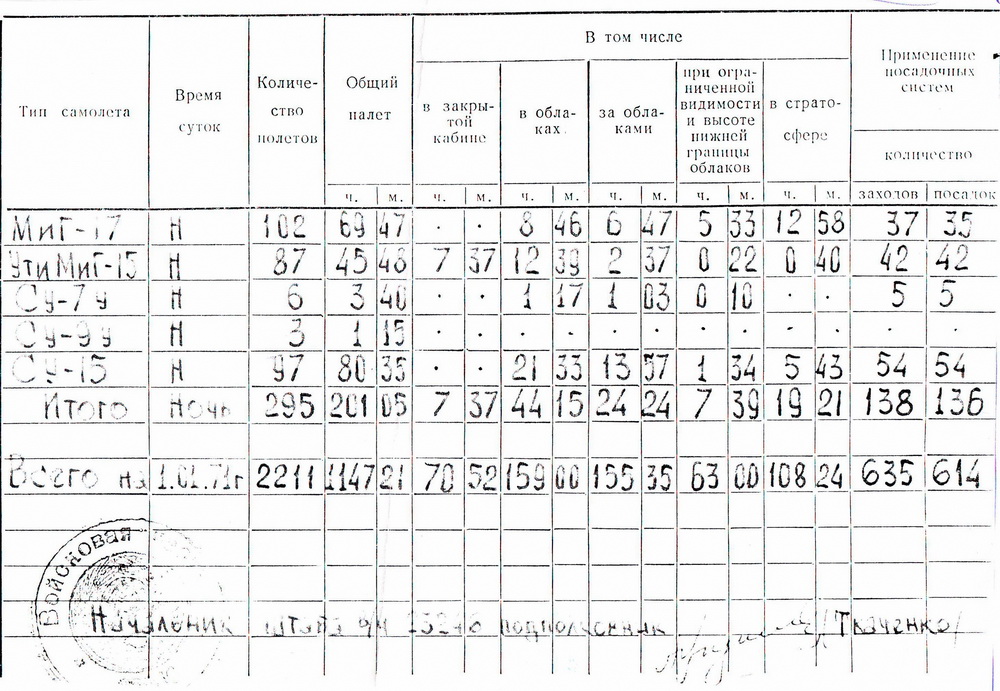 В том числе
Применение посадочных систем
Тип самолета
Время суток
Количе-ство полетов
Общий налет
в закры-той кабине
в обла-ках
за обла-ками
при огра-ниченной видимости и высоте нижней границы облаков
в страто-сфере
количество
ч. м. ч. м. ч. м. ч. м. ч. м. ч. м. заходов посадок
МиГ-17 Н 102 69 47 · · 8 46 6 47 5 33 12 58 37 35
УтиМиГ-15 Н 87 45 48 7 37 12 39 2 37 0 22 0 40 42 42
Су-7у Н 6 3 40 · · 1 17 1 03 0 10 · · 5 5
Су-9у Н 3 1 15 · · · · · · · · · · · ·
Су-15 Н 97 80 35 · · 21 33 13 57 1 34 5 43 54 54
Итого Ночь 295 201 05 7 37 44 15 24 24 7 39 19 21 138 136
Всего на 1.01.71г 2211 1147 21 70 52 159 00 155 35 63 00 108 24 635 614
Войсковая
Начальник штаба в/ч подполковник /Ткаченко/